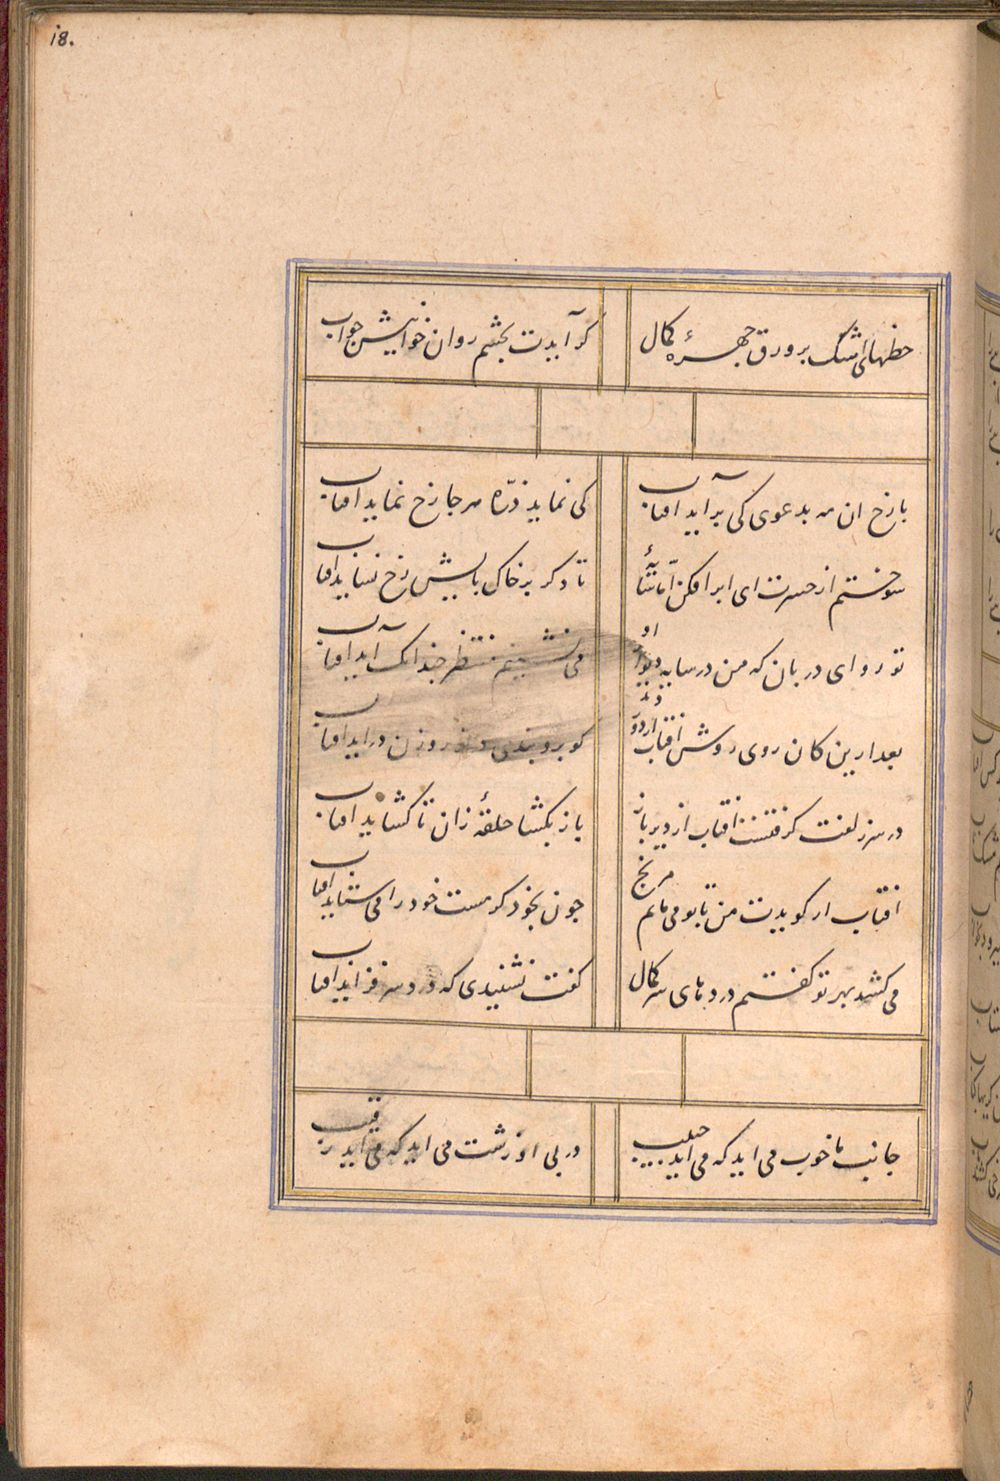 18.
خطهای اشک بر ورق چهرهٔ کمال
کر آیدت بچشم روان خوانیش جواب
با رخ ان مه بدعوی کی برآید افتاب
کی نماید ذرّه هر جا رخ نماید افتاب
سوختم از حسرت ای ابر افکن
تا دکر بر خاک پایش رخ نساید افتاب
تو رو ای دربان که من در سایه دیوار او
می نشینم منتظر چندانک آید افتاب
بعد ازین کان روی روشن افتاب
کو برو بندی در روزن درآید افتاب
در سر زلفت کرفتست افتاب از دیر باز
باز بکشا حلقهٔ زان تا کشاید افتاب
افتاب ار کویدت من با تو می مانم مرنج
چون بخود کر هست خود را می ستاید افتاب
می کشد بهر تو کفتم درد پاهای سر کمال
کفت نشنیدی که درد سر فزاید افتاب
جانب ما خوب می اید که می اید حبیب
در پی او زشت می اید که می اید رقیب